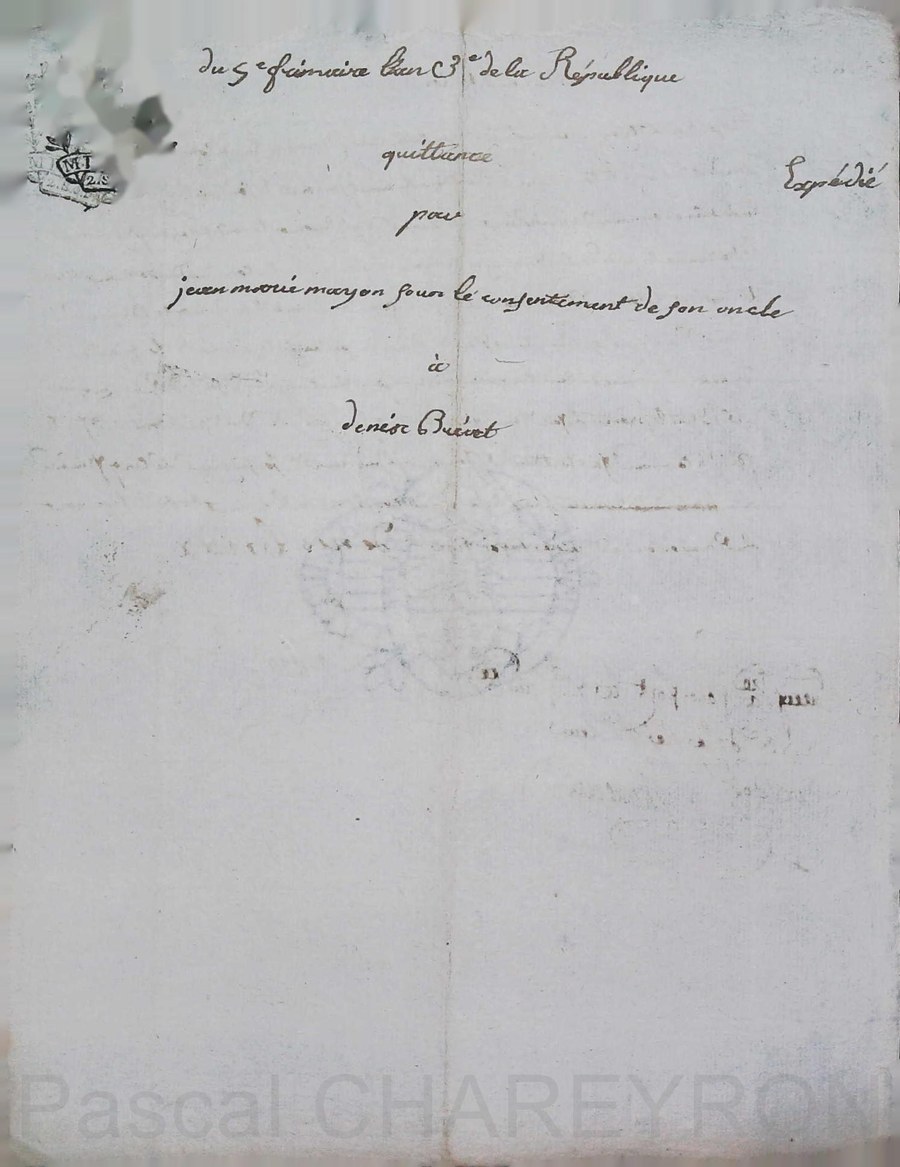 du 5e frimaire l'an 3e de la République
quittance
Expédié
pour
jean marie mayon sous le consentement de son oncle
à
denise
Pascal CHAREYRON